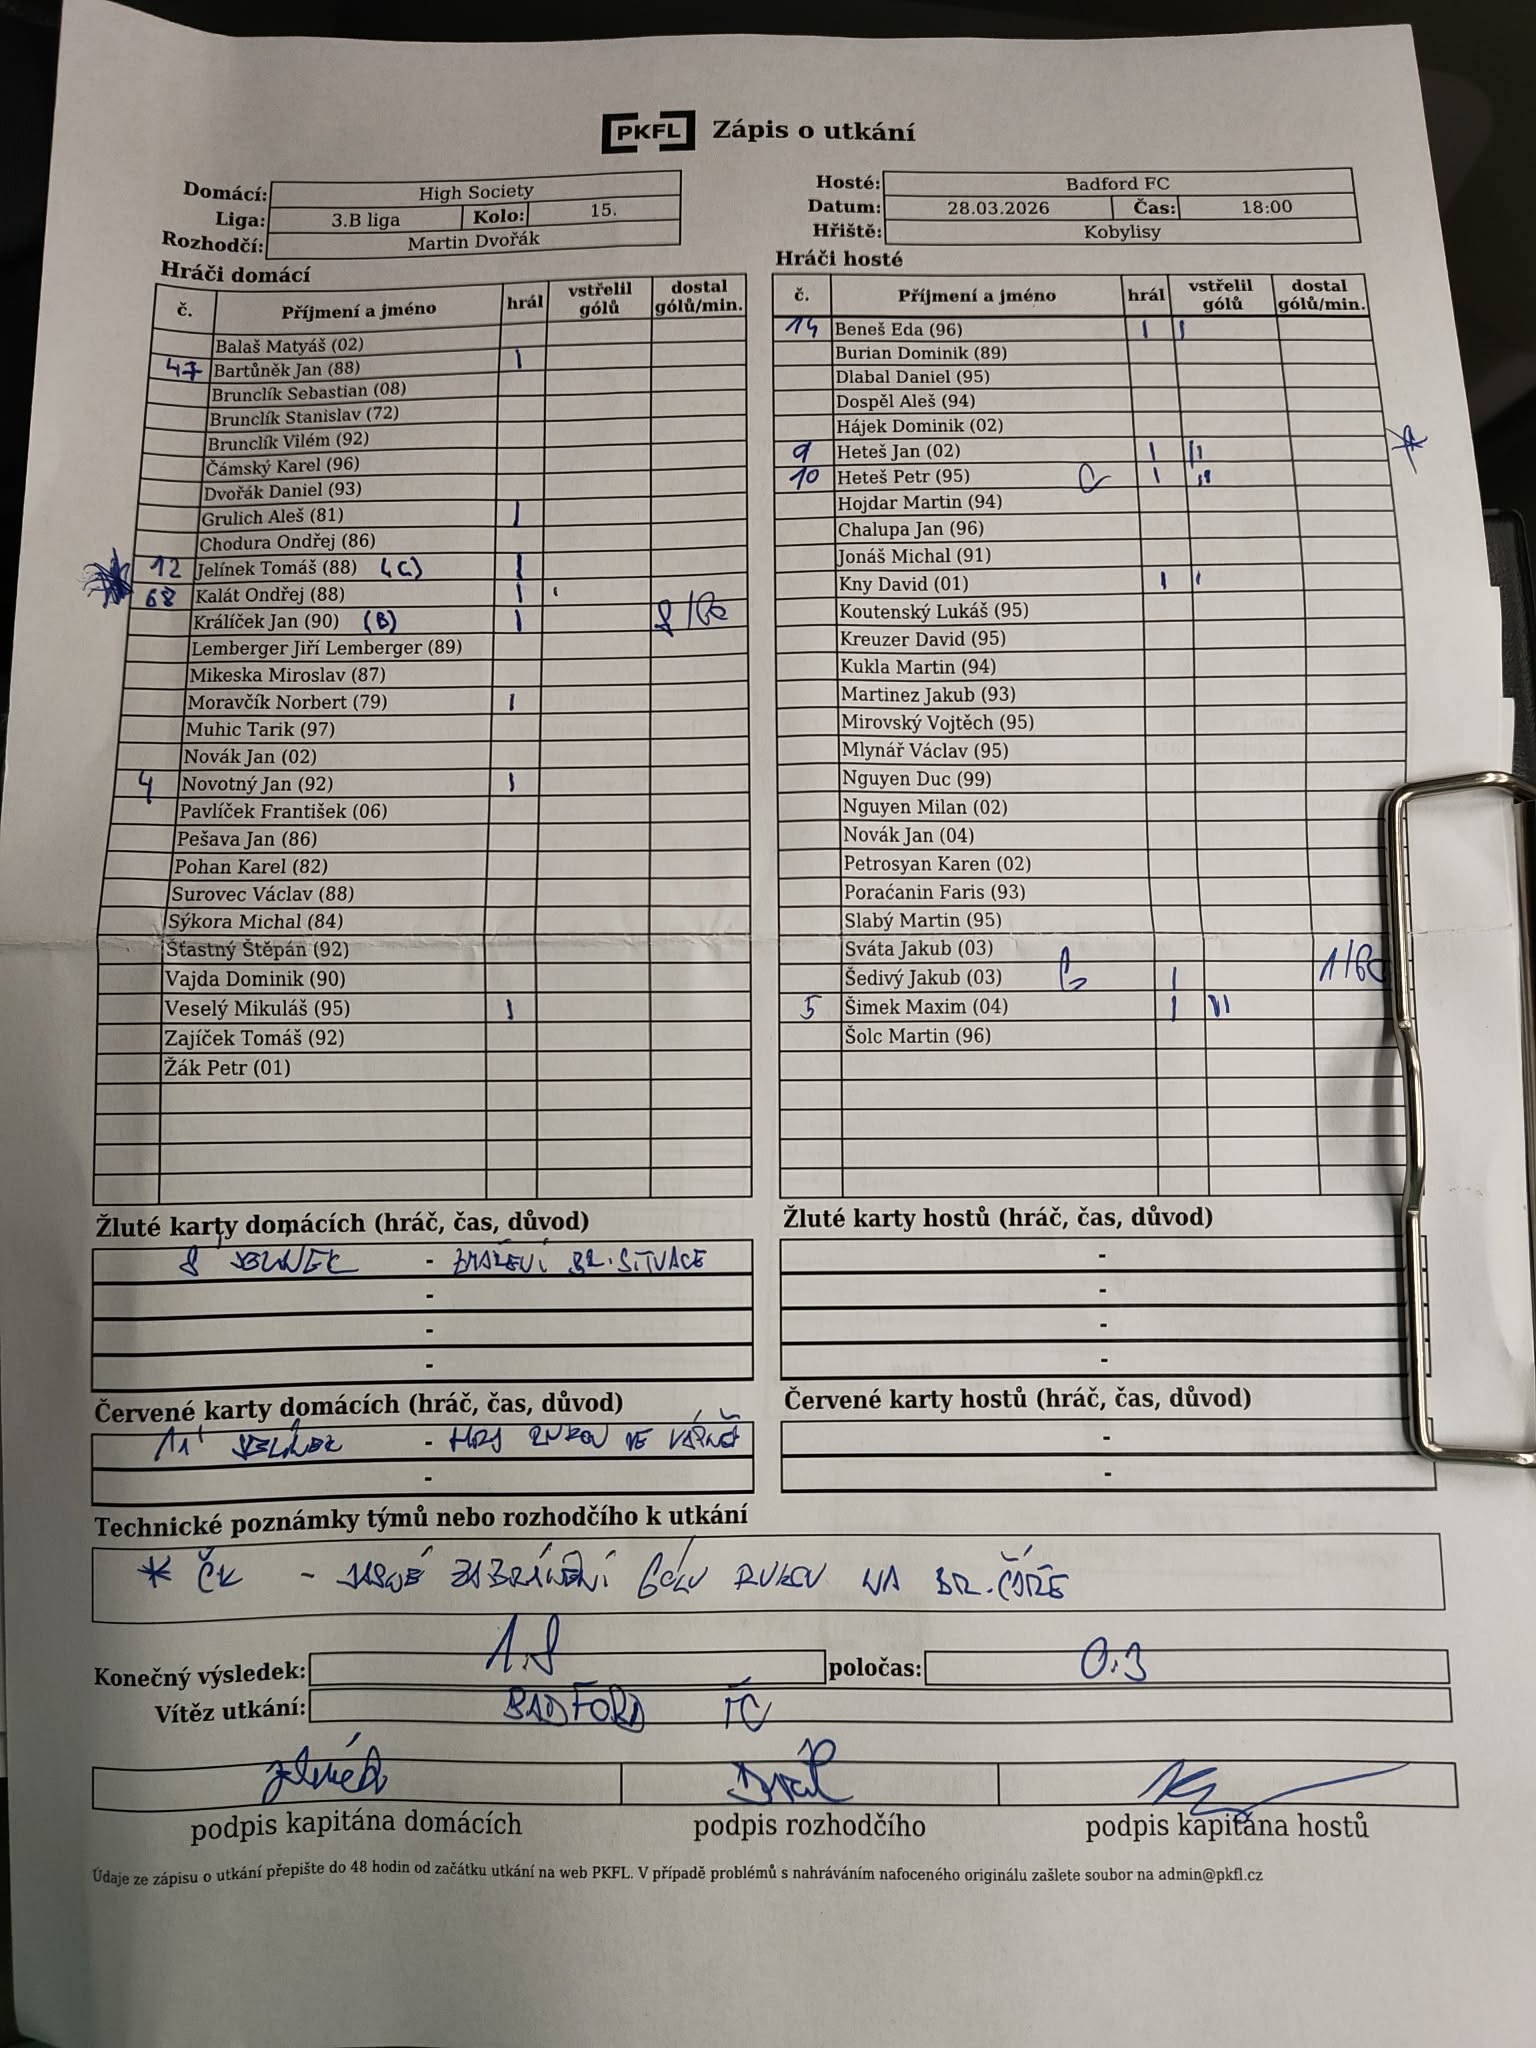 PKFL Zápis o utkání
Domácí: High Society
Liga: 3.B liga Kolo: 15.
Rozhodčí: Martin Dvořák
Hosté: Badford FC
Datum: 28.03.2026 Čas: 18:00
Hřiště: Kobylisy
Hráči domácí
č. Příjmení a jméno hrál vstřelil gólů dostal gólů/min.
Balaš Matyáš (02)
47 Bartůněk Jan (88) I
Brunclík Sebastian (08)
Brunclík Stanislav (72)
Brunclík Vilém (92)
Čámský Karel (96)
Dvořák Daniel (93)
Grulich Aleš (81) I
Chodura Ondřej (86)
12 Jelínek Tomáš (88) (C) I
68 Kalát Ondřej (88) I I
Králíček Jan (90) (B) I 8/60
Lemberger Jiří Lemberger (89)
Mikeska Miroslav (87)
Moravčík Norbert (79) I
Muhic Tarik (97)
Novák Jan (02)
4 Novotný Jan (92) I
Pavlíček František (06)
Pešava Jan (86)
Pohan Karel (82)
Surovec Václav (88)
Sýkora Michal (84)
Šťastný Štěpán (92)
Vajda Dominik (90)
Veselý Mikuláš (95) I
Zajíček Tomáš (92)
Žák Petr (01)
Hráči hosté
č. Příjmení a jméno hrál vstřelil gólů dostal gólů/min.
14 Beneš Eda (96) I I
Burian Dominik (89)
Dlabal Daniel (95)
Dospěl Aleš (94)
Hájek Dominik (02)
9 Heteš Jan (02) I II
10 Heteš Petr (95) C I II
Hojdar Martin (94)
Chalupa Jan (96)
Jonáš Michal (91)
Kny David (01) I I
Koutenský Lukáš (95)
Kreuzer David (95)
Kukla Martin (94)
Martinez Jakub (93)
Mirovský Vojtěch (95)
Mlynář Václav (95)
Nguyen Duc (99)
Nguyen Milan (02)
Novák Jan (04)
Petrosyan Karen (02)
Poraćanin Faris (93)
Slabý Martin (95)
Sváta Jakub (03)
Šedivý Jakub (03) G I 1/60
5 Šimek Maxim (04) I II
Šolc Martin (96)
Žluté karty domácích (hráč, čas, důvod)
8' JELÍNEK - ZMAŘENÍ BR. SITUACE
-
-
-
Žluté karty hostů (hráč, čas, důvod)
-
-
-
-
Červené karty domácích (hráč, čas, důvod)
11' JELÍNEK - HRA RUKOU VE VÁPNĚ
-
Červené karty hostů (hráč, čas, důvod)
-
-
Technické poznámky týmů nebo rozhodčího k utkání
* ČK - JASNÉ ZABRÁNĚNÍ GÓLU RUKOU NA BR. ČÁŘE
Konečný výsledek: 1:8 poločas: 0:3
Vítěz utkání: BADFORD FC
podpis kapitána domácích podpis rozhodčího podpis kapitána hostů
Údaje ze zápisu o utkání přepište do 48 hodin od začátku utkání na web PKFL. V případě problémů s nahráváním nafoceného originálu zašlete soubor na admin@pkfl.cz